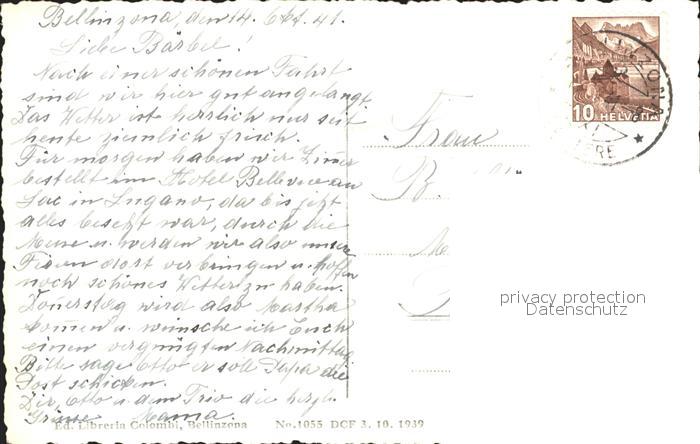 Bellinzona, den 14. Okt. 41.
Liebe Bärbel!
Nach einer schönen Fahrt
sind wir hier gut angelangt.
Das Wetter ist herrlich nur seit
heute ziemlich frisch.
Für morgen haben wir Zimer
bestellt im Hotel Bellevue au
Lac in Lugano, da bis jetzt
alles besetzt war, durch die
Messe u. werden wir also unsere
Ferien dort verbringen u. hoffen
noch schönes Wetter zu haben.
Donerstag wird also Martha
komen u. wünsche ich Euch
einen vergnügten Nachmittag
Bitte sage Otto er soll Papa die
Post schicken.
Dir, Otto u. dem Trio die herzl.
Grüsse Mama.
Ed. Libreria Colombi, Bellinzona No. 1055 DCF 3. 10. 1939
10 HELVETIA
Frau
B
privacy protection
Datenschutz